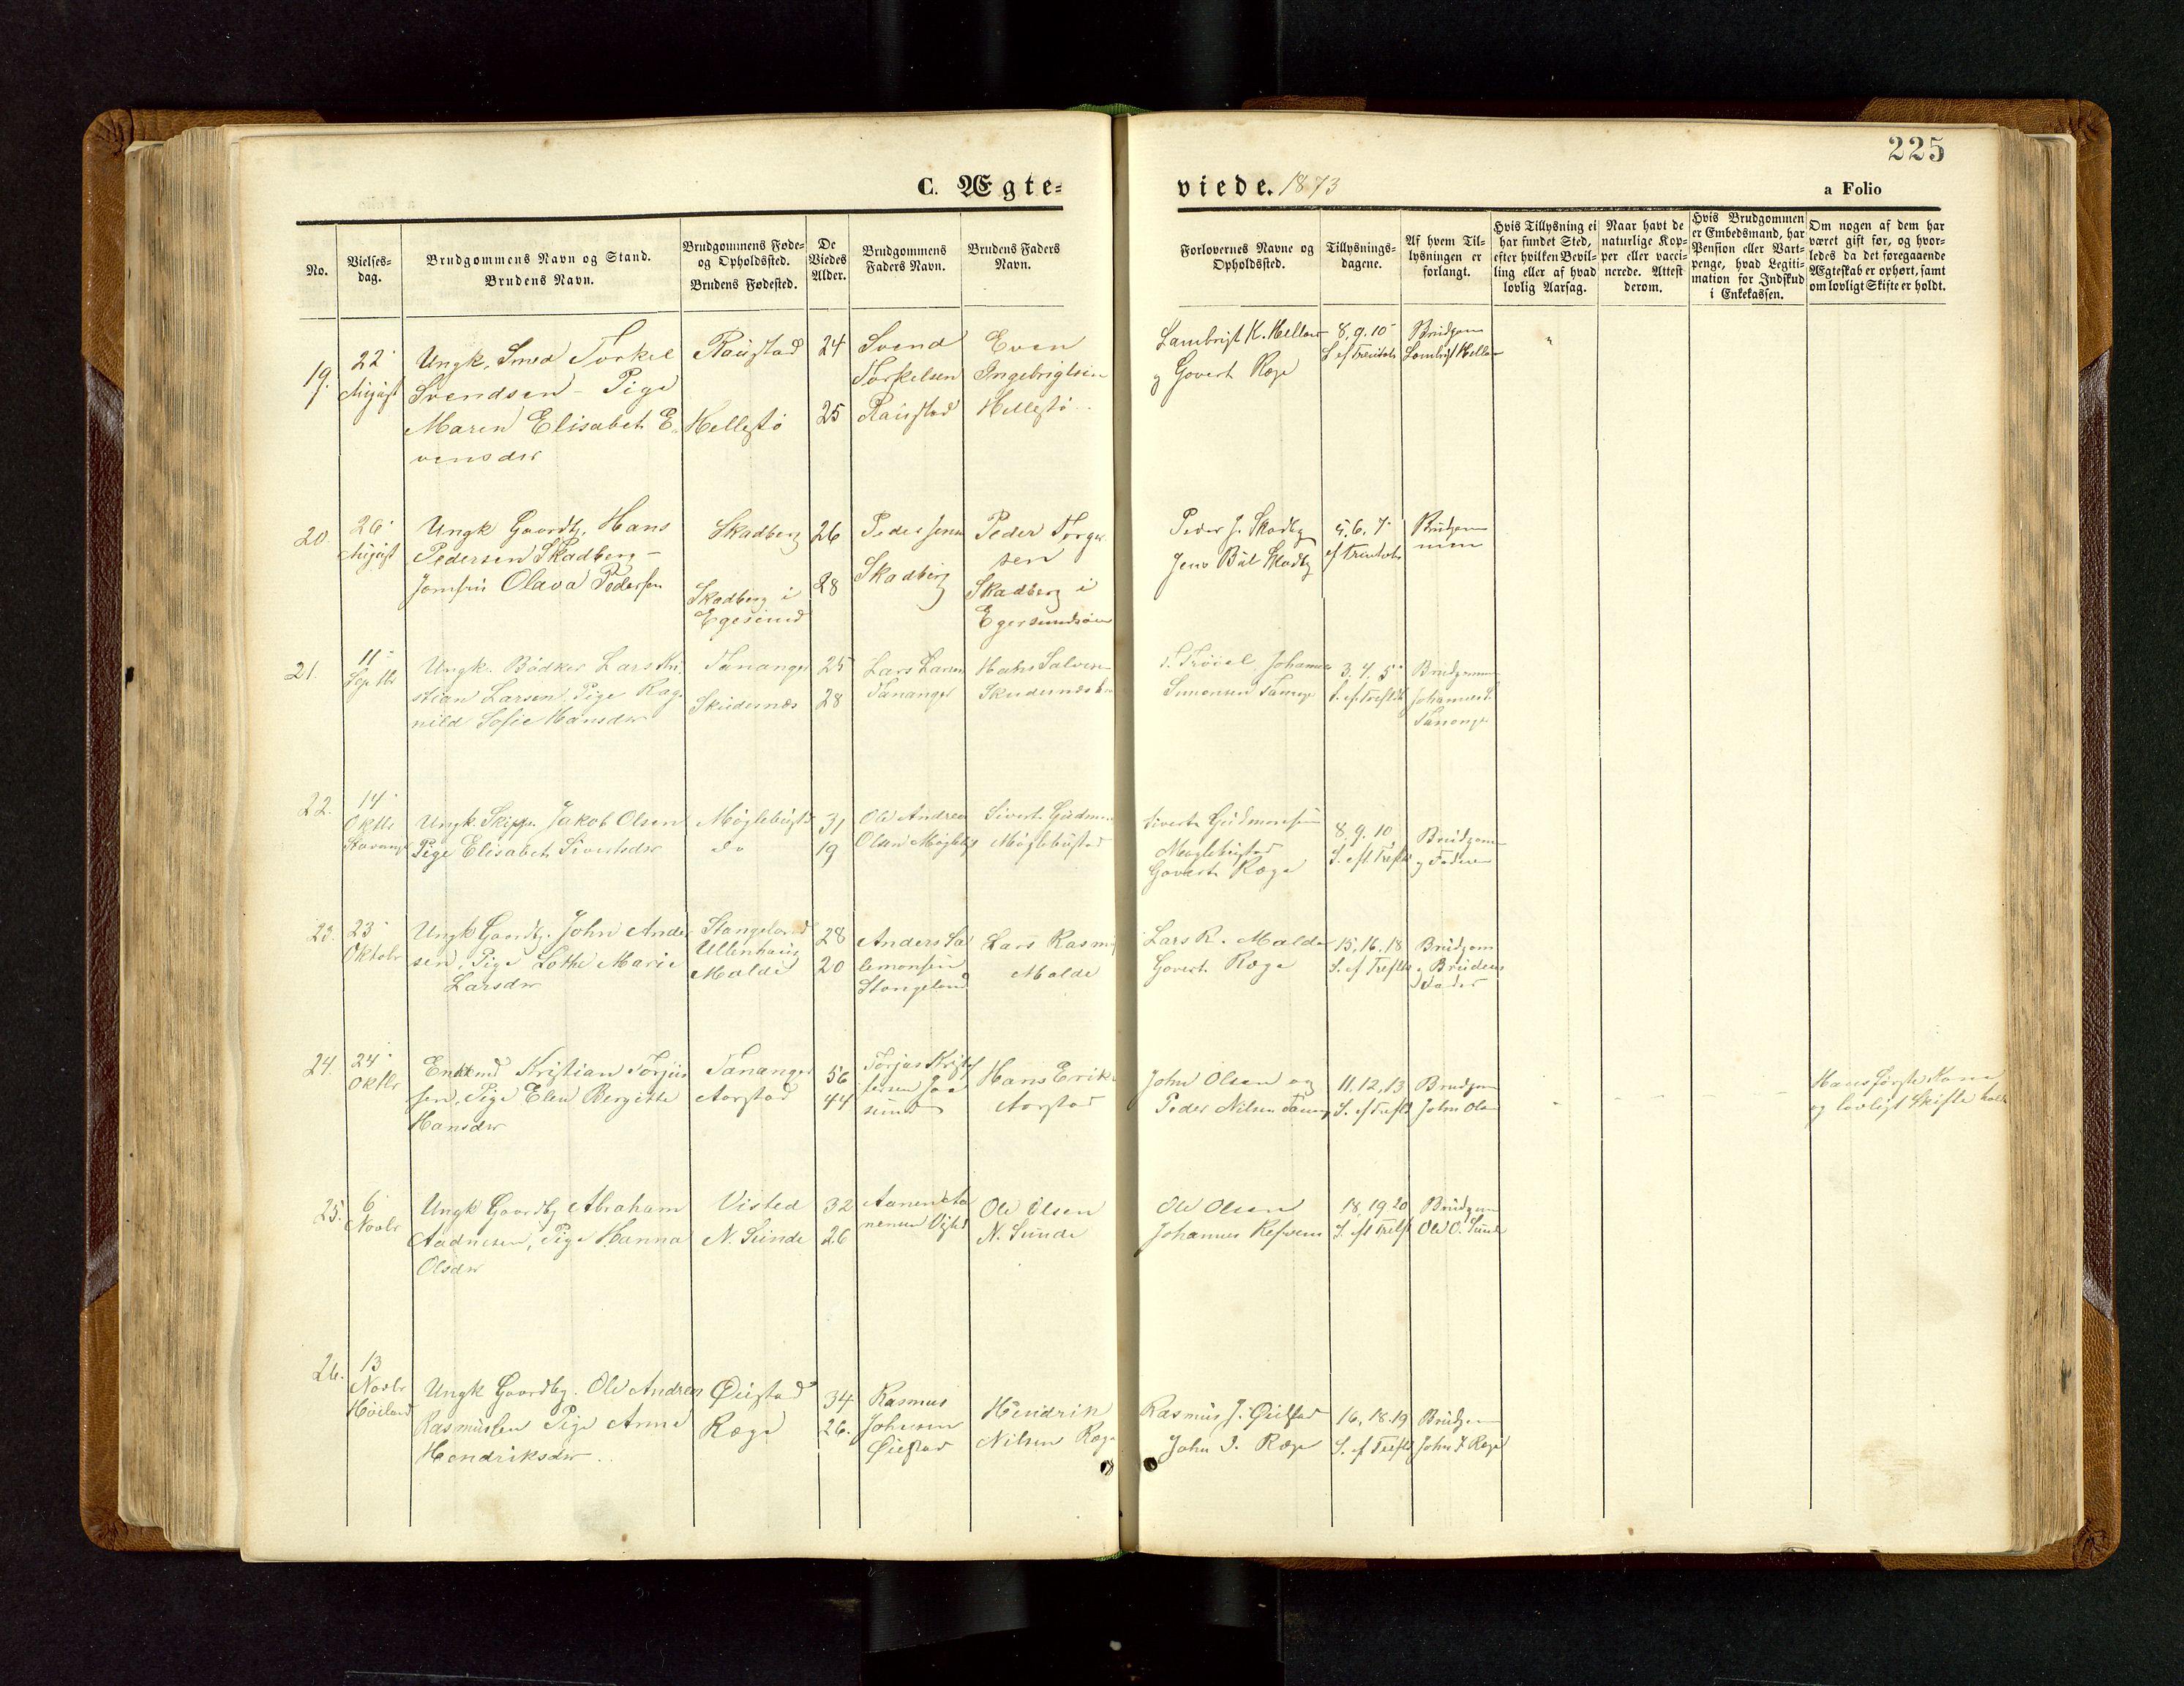 225
C. Ægte=
viede. 1873
a Folio
No.
Vielses-
dag.
Brudgommens Navn og Stand.
Brudens Navn.
Brudgommens Føde-
og Opholdssted.
Brudens Fødested.
De
Viedes
Alder.
Brudgommens
Faders Navn.
Brudens Faders
Navn.
Forlovernes Navne og
Opholdssted.
Tillysnings-
dagene.
Af hvem Til-
lysningen er
forlangt.
Hvis Tillysning ei
har fundet Sted,
efter hvilken Bevil-
ling eller af hvad
lovlig Aarsag.
Naar havt de
naturlige Kop-
per eller vacci-
nerede. Attest
derom.
Hvis Brudgommen
er Embedsmand, har
Pension eller Vart-
penge, hvad Legiti-
mation for Indskud
i Enkekassen.
Om nogen af dem har
været gift før, og hvor-
ledes da det foregaaende
Ægteskab er ophørt, samt
om lovligt Skifte er holdt.
19.
22
August
Ungk. Smed Torkel
Svendsen - Pige
Maren Elisabet E-
vensdr
Raustad
Hellestø
24
25
Svend
Torkelsen
Raustad
Even
Ingebrigtsen
Hellestø
Lambrigt K. Hellestø
og Govert Ræge
8, 9, 10
S. ef Trinitatis
Brudgom
Lambrigt Hellestø
20.
26
August
Ungk Gaardbr. Hans
Pedersen Skadberg -
Jomfru Olava Pedersen
Skadberg
Skadberg i
Egersund
26
28
Peder Jensen
Skadberg
Peder Torger
sen
Skadberg i
Egersundsøen
Peder J. Skadbg
Jens Bül Skadbg
5, 6, 7
ef Trinitatis
Brudgom
men
21.
11
Septbr
Ungk. Bødker Lars Kri
stian Larsen, Pige Rag
nild Sofie Hansdr
Tananger
Skudesnæs
25
28
Lars Larsen
Tananger
Hans Salvesen
Skudesnæs
Johannes
Simonsen Tananger
3, 4, 5
S. ef Treftk
Brudgommen
Johannes S.
Tananger
22.
14
Oktbr
Stavanger
Ungk. Skipper Jakob Olsen
Pige Elisabet Sivertsdr
Møglebustd
do
31
19
Ole Andreas
Olsen Møglebg
Sivert Gudmun
Møglebustad
Sivert Gudmundsen
Møglebustad
Govert Ræge
8, 9, 10
S. eft Treftk
Brudgom
og Faderen
23.
23
Oktobr
Ungk Gaardbr. John Ander
sen, Pige Lothe Marie
Larsdr
Stangeland
Ullenhaug
Malde
28
20
Anders Sa
lemonsen
Stangeland
Lars Rasm
Malde
Lars R. Malde
Govert Ræge
15, 16, 18
S. ef Treftk
Brudgom
og Brudens
Fader
24.
24
Oktbr
Enkemd Kristian Torjus
sen, Pige Elen Bergitte
Hansdr
Tananger
Aarstad
56
44
Torjus Kristof
fersen Jaa
sund
Hans Erik
Aarstad
John Olsen og
Peder Nilsen Tanang
11, 12, 13
S. ef Treft
Brudgom
John Olsen
Hans første Kone
og lovligt Skifte holdt
25.
6
Novbr
Ungk Gaardbg Abraham
Aadnesen, Pige Hanna
Olsdr
Visted
N. Sunde
32
26
Aanen Aa
nensen Visted
Ole Olsen
N. Sunde
Ole Olsen
Johannes Refsnes
18, 19, 20
S. eft Treft
Brudgom
Ole O. Sunde
26.
13
Novbr
Høiland
Ungk Gaardbg. Ole Andreas
Rasmussen Pige Anna
Hendriksdr
Øiestad
Ræge
34
26.
Rasmus
Johnsen
Øiestad
Hendrik
Nilsen Ræge
Rasmus J. Øiestad
John I. Ræge
16, 18, 19
S. ef Treft
Brudgom
John I Ræge